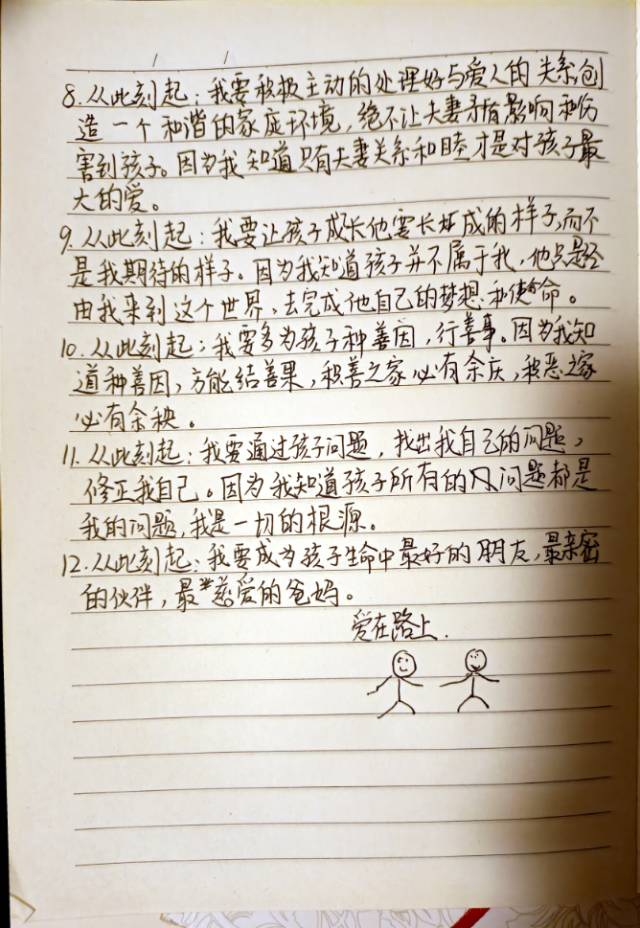 8.从此刻起：我要积极主动的处理好与爱人的关系，创
造一个和谐的家庭环境，绝不让夫妻矛盾影响和伤
害到孩子。因为我知道只有夫妻关系和睦才是对孩子最
大的爱。
9.从此刻起：我要让孩子成长他要长成的样子，而不
是我期待的样子。因为我知道孩子并不属于我，他只是经
由我来到这个世界，去完成他自己的梦想和使命。
10.从此刻起：我要多为孩子种善因，行善事。因为我知
道种善因，方能结善果，积善之家必有余庆，积恶之家
必有余秧。
11.从此刻起：我要通过孩子问题，找出我自己的问题，
修正我自己。因为我知道孩子所有的问题都是
我的问题，我是一切的根源。
12.从此刻起：我要成为孩子生命中最好的朋友，最亲密
的伙伴，最慈爱的爸妈。
爱在路上.